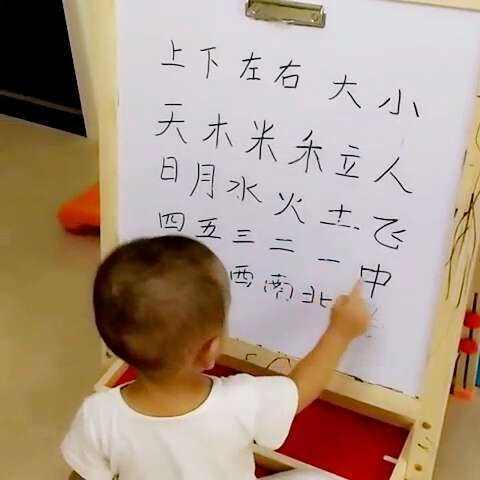 上下左右大小
天木米禾立人
日月水火土飞
四五三二一中
西南北